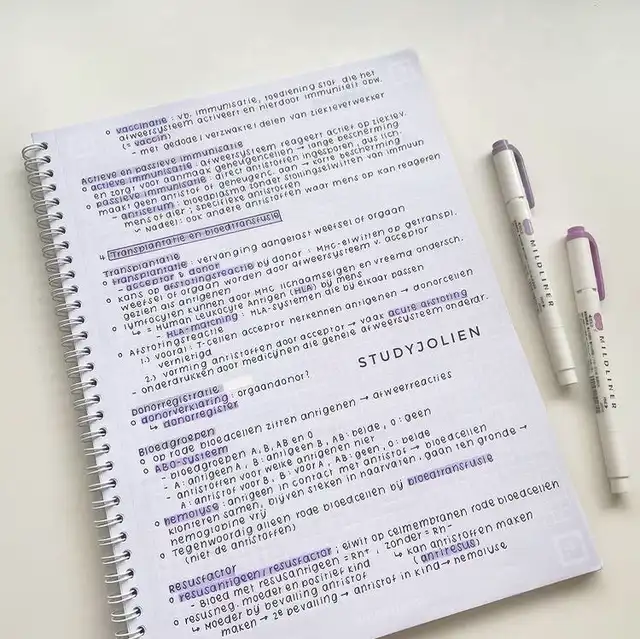 o vaccinatie : vb. immunisatie, toediening stof die het
afweersysteem activeert en hierdoor immuniteit obw.
(= vaccin)
- met gedode / verzwakte delen van ziekteverwekker
Actieve en passieve immunisatie
o actieve immunisatie : afweersysteem reageert actief op ziektev.
en zorgt voor aanmaak geheugencellen → lange bescherming
o passieve immunisatie : direct antistoffen ingespoten, dus lich.
maakt geen antistof of geheugenc. aan → korte bescherming
- antiserum : bloedplasma zonder stollingseiwitten van immuun
mens of dier ; specifieke antistoffen
↳ Nadeel : ook andere antistoffen waar mens op kan reageren
Transplantatie en bloedtransfusie
Transplantatie
o transplantatie : vervanging aangetast weefsel of orgaan
- acceptor & donor
o kans op afstotingsreactie bij donor : MHC-eiwitten op getranspl.
weefsel of orgaan worden door afweersysteem v. acceptor
gezien als antigenen
o lymfocyten kunnen door MHC lichaamseigen en vreemd ondersch.
↳ = Human Leukocyte Antigen (HLA) bij mens
HLA-matching : HLA-systemen die bij elkaar passen
o Afstotingsreactie
1.) vooral : T-cellen acceptor herkennen antigenen → donorcellen
vernietigd
2.) vorming antistoffen door acceptor → vaak acute afstoting
- onderdrukken door medicijnen die gehele afweersysteem onderdr.
STUDYJOLIEN
Donorregistratie
o donorverklaring : organdonor?
↳ donorregister
Bloedgroepen
o op rode bloedcellen zitten antigenen → afweerreacties
o ABO-systeem
- bloedgroepen A, B, AB en O
A : antigeen A, B : antigeen B, AB : beide, O : geen
- antistoffen voor welke antigenen niet
A : antistof voor B, B : voor A, AB : geen, O : beide
o hemolyse : antigeen in contact met antistof → bloedcellen
klonteren samen, blijven steken in haarvaten, gaan ten gronde →
hemoglobine vrij
o Tegenwoordig alleen rode bloedcellen bij bloedtransfusie
(niet de antistoffen)
Resusfactor
o resusantigeen / resusfactor : eiwit op celmembranen rode bloedcellen
- Bloed met resusantigeen = Rh+, zonder = Rh-
↳ kan antistoffen maken
(antiresus)
o resusneg. moeder en positief kind
↳ Moeder bij bevalling antistof
maken → 2e bevalling → antistof in kind → hemolyse
MILDLINER
MILDLINER